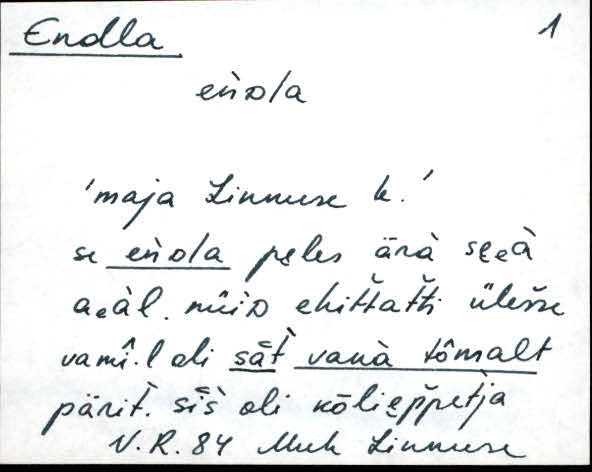 Endla 1
eǹᴅla
'maja Linnuse k.'
se eǹᴅla pɐles ärà sɐeà
aeàl. nüiᴅ ehit̆tat̆ti üles̆se
vamî·l oli sät̀ vanà tômsalt
pärit̀. sīs̀ oli kōliep̆petja
V.R. 84 Muh Linnuse